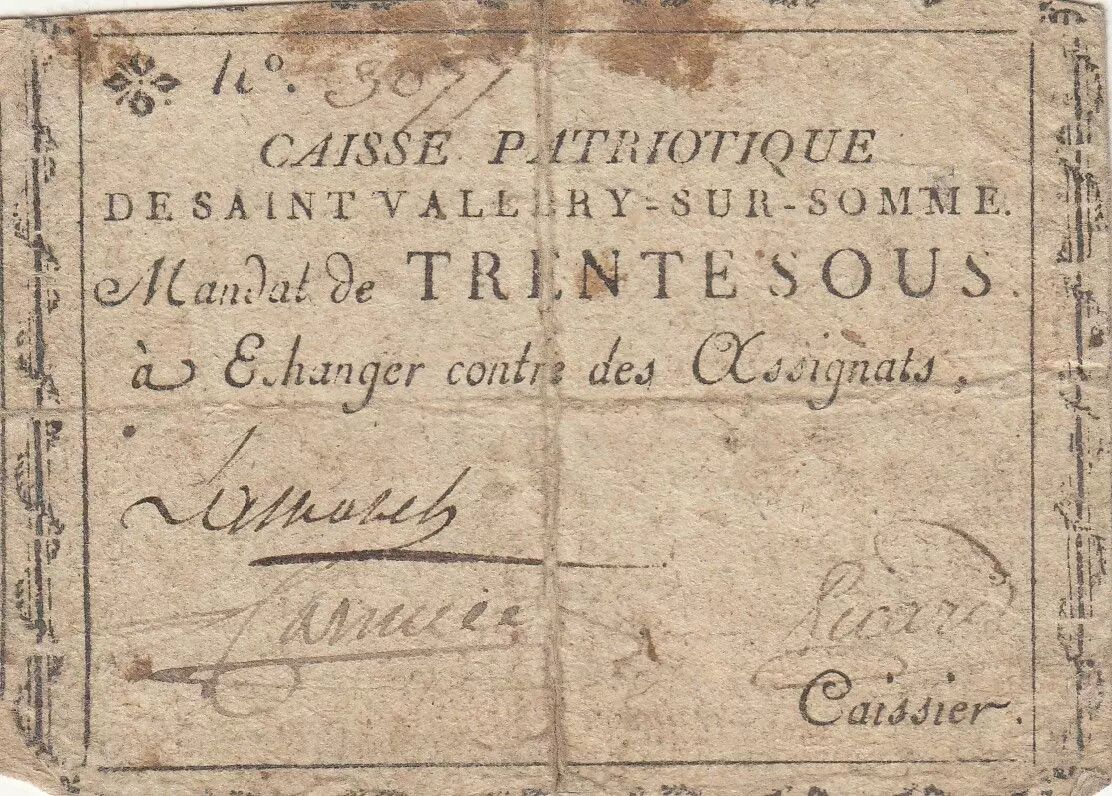 N°. 3077
CAISSE PATRIOTIQUE
DE SAINT VALLERY=SUR-SOMME.
Mandat de TRENTE SOUS.
à Echanger contre des Assignats.
Picard
Caissier.